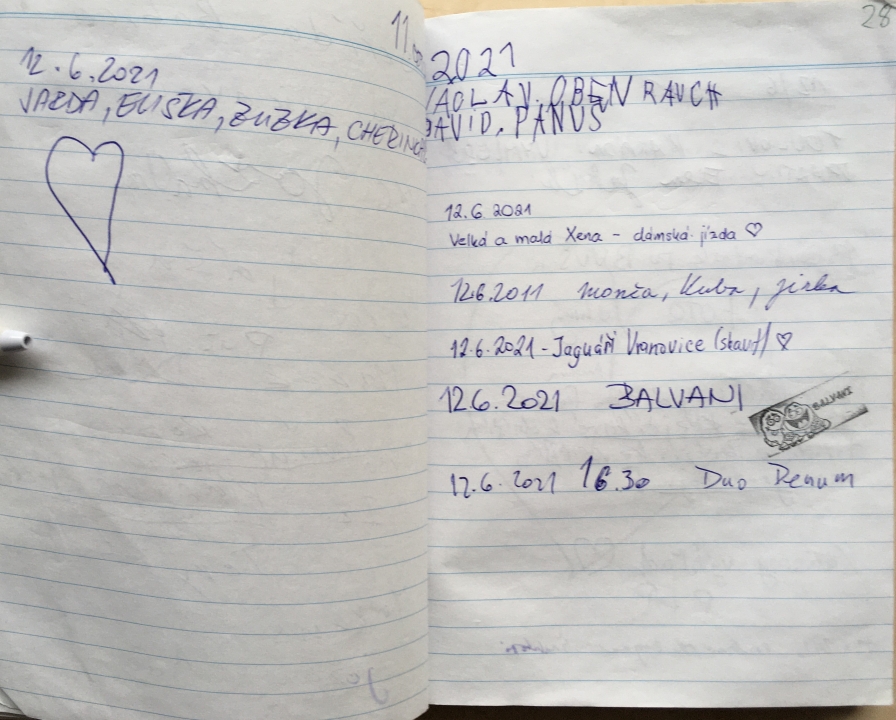 12.6.2021
JAZDA, ELIŠKA, ZUZKA, CHERINCH
11.
28
2021
VÁCLAV. OBENRAUCH
DAVID. PANUŠ
12.6 2021
Velká a malá Xena - dámská jízda ♡
12.6.2011 Monča, Kuba, Jirka
12.6.2021 - Jaguáři Vranovice (skaut) ♡
12.6.2021 BALVANI
BALVANI
12.6.2021 16.30 Duo Renum